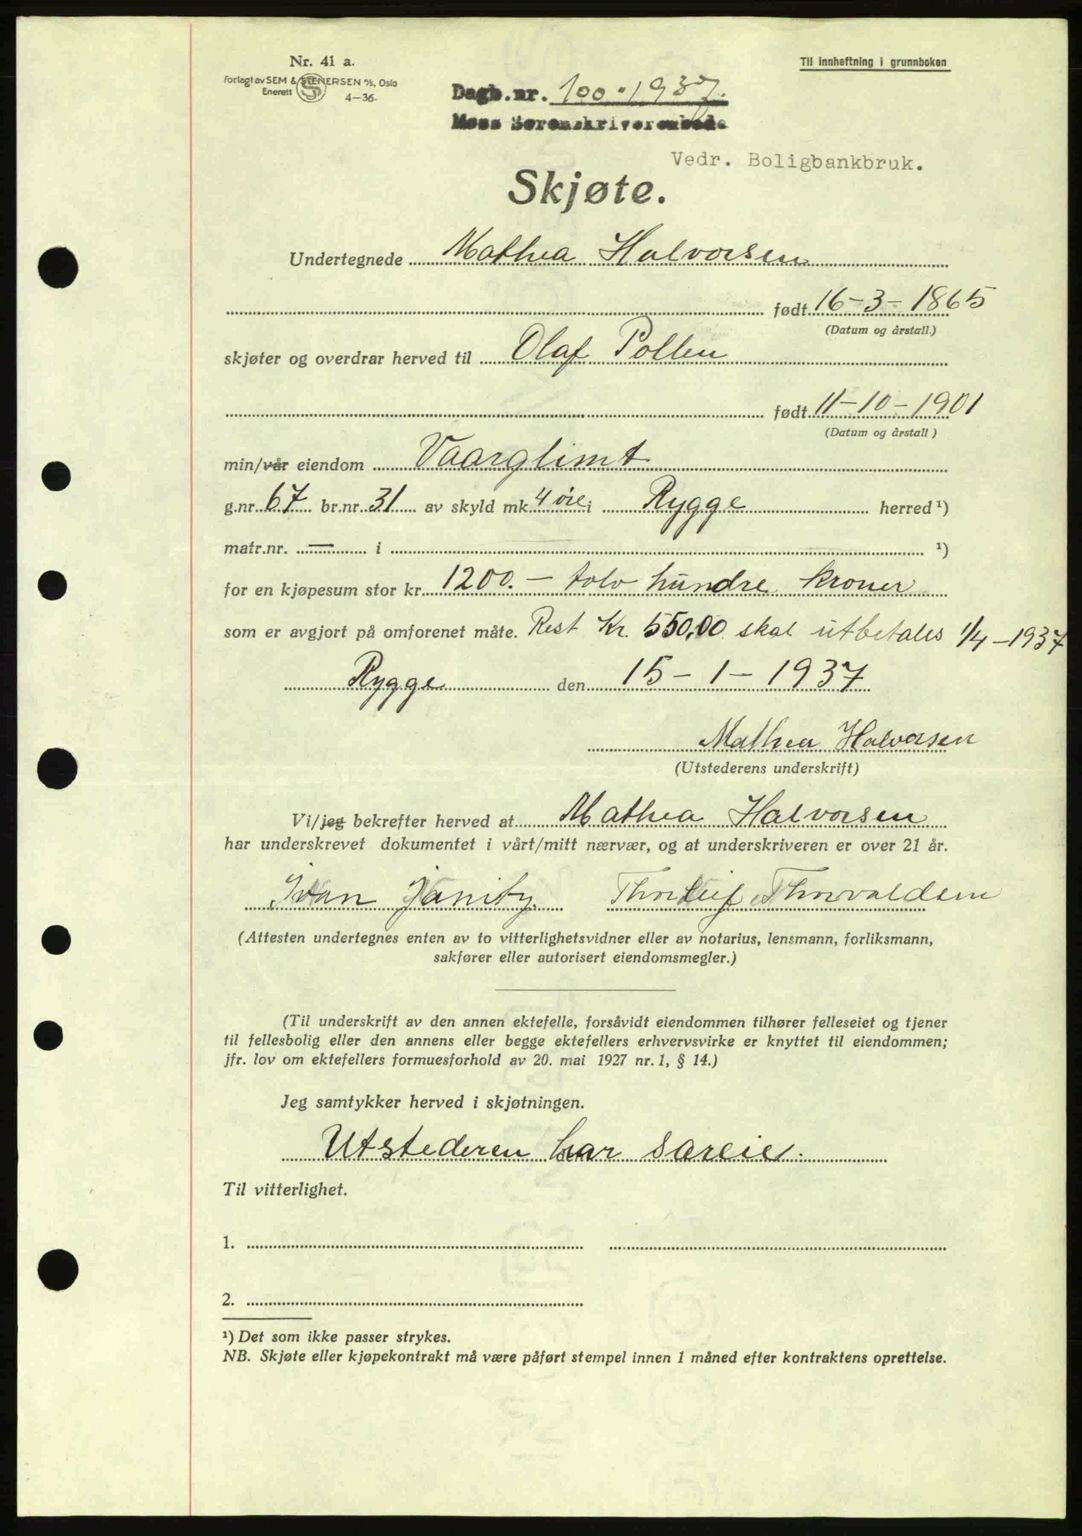 Nr. 41 a.
Forlagt av SEM & STENERSEN A/S, Oslo
Enerett
4-36.
Til innheftning i grunnboken
Dagb.nr. 100 - 1937.
Moss Sorenskriverembede
Vedr. Boligbankbruk.
Skjøte.
Undertegnede Mathea Halvorsen
født 16-3-1865
(Datum og årstall.)
skjøter og overdrar herved til Olaf Pollen
født 11-10-1901
(Datum og årstall)
min/vår eiendom Vaarglimt
g.nr. 67 br.nr. 31 av skyld mk. 4 øre i Rygge herred ¹)
matr.nr. — i ¹)
for en kjøpesum stor kr. 1200.- tolv hundre kroner
som er avgjort på omforenet måte. Rest Kr. 550,00 skal utbetales 1/4-1937
Rygge den 15-1-1937
Mathea Halvorsen
(Utstederens underskrift)
Vi/jeg bekrefter herved at Mathea Halvorsen
har underskrevet dokumentet i vårt/mitt nærvær, og at underskriveren er over 21 år.
Ivan Thorleif Thorvaldsen
(Attesten undertegnes enten av to vitterlighetsvidner eller av notarius, lensmann, forliksmann,
sakfører eller autorisert eiendomsmegler.)
(Til underskrift av den annen ektefelle, forsåvidt eiendommen tilhører felleseiet og tjener
til fellesbolig eller den annens eller begge ektefellers erhvervsvirke er knyttet til eiendommen;
jfr. lov om ektefellers formuesforhold av 20. mai 1927 nr. 1, § 14.)
Jeg samtykker herved i skjøtningen.
Utstederen har særeie.
Til vitterlighet.
1.
2.
¹) Det som ikke passer strykes.
NB. Skjøte eller kjøpekontrakt må være påført stempel innen 1 måned efter kontraktens oprettelse.